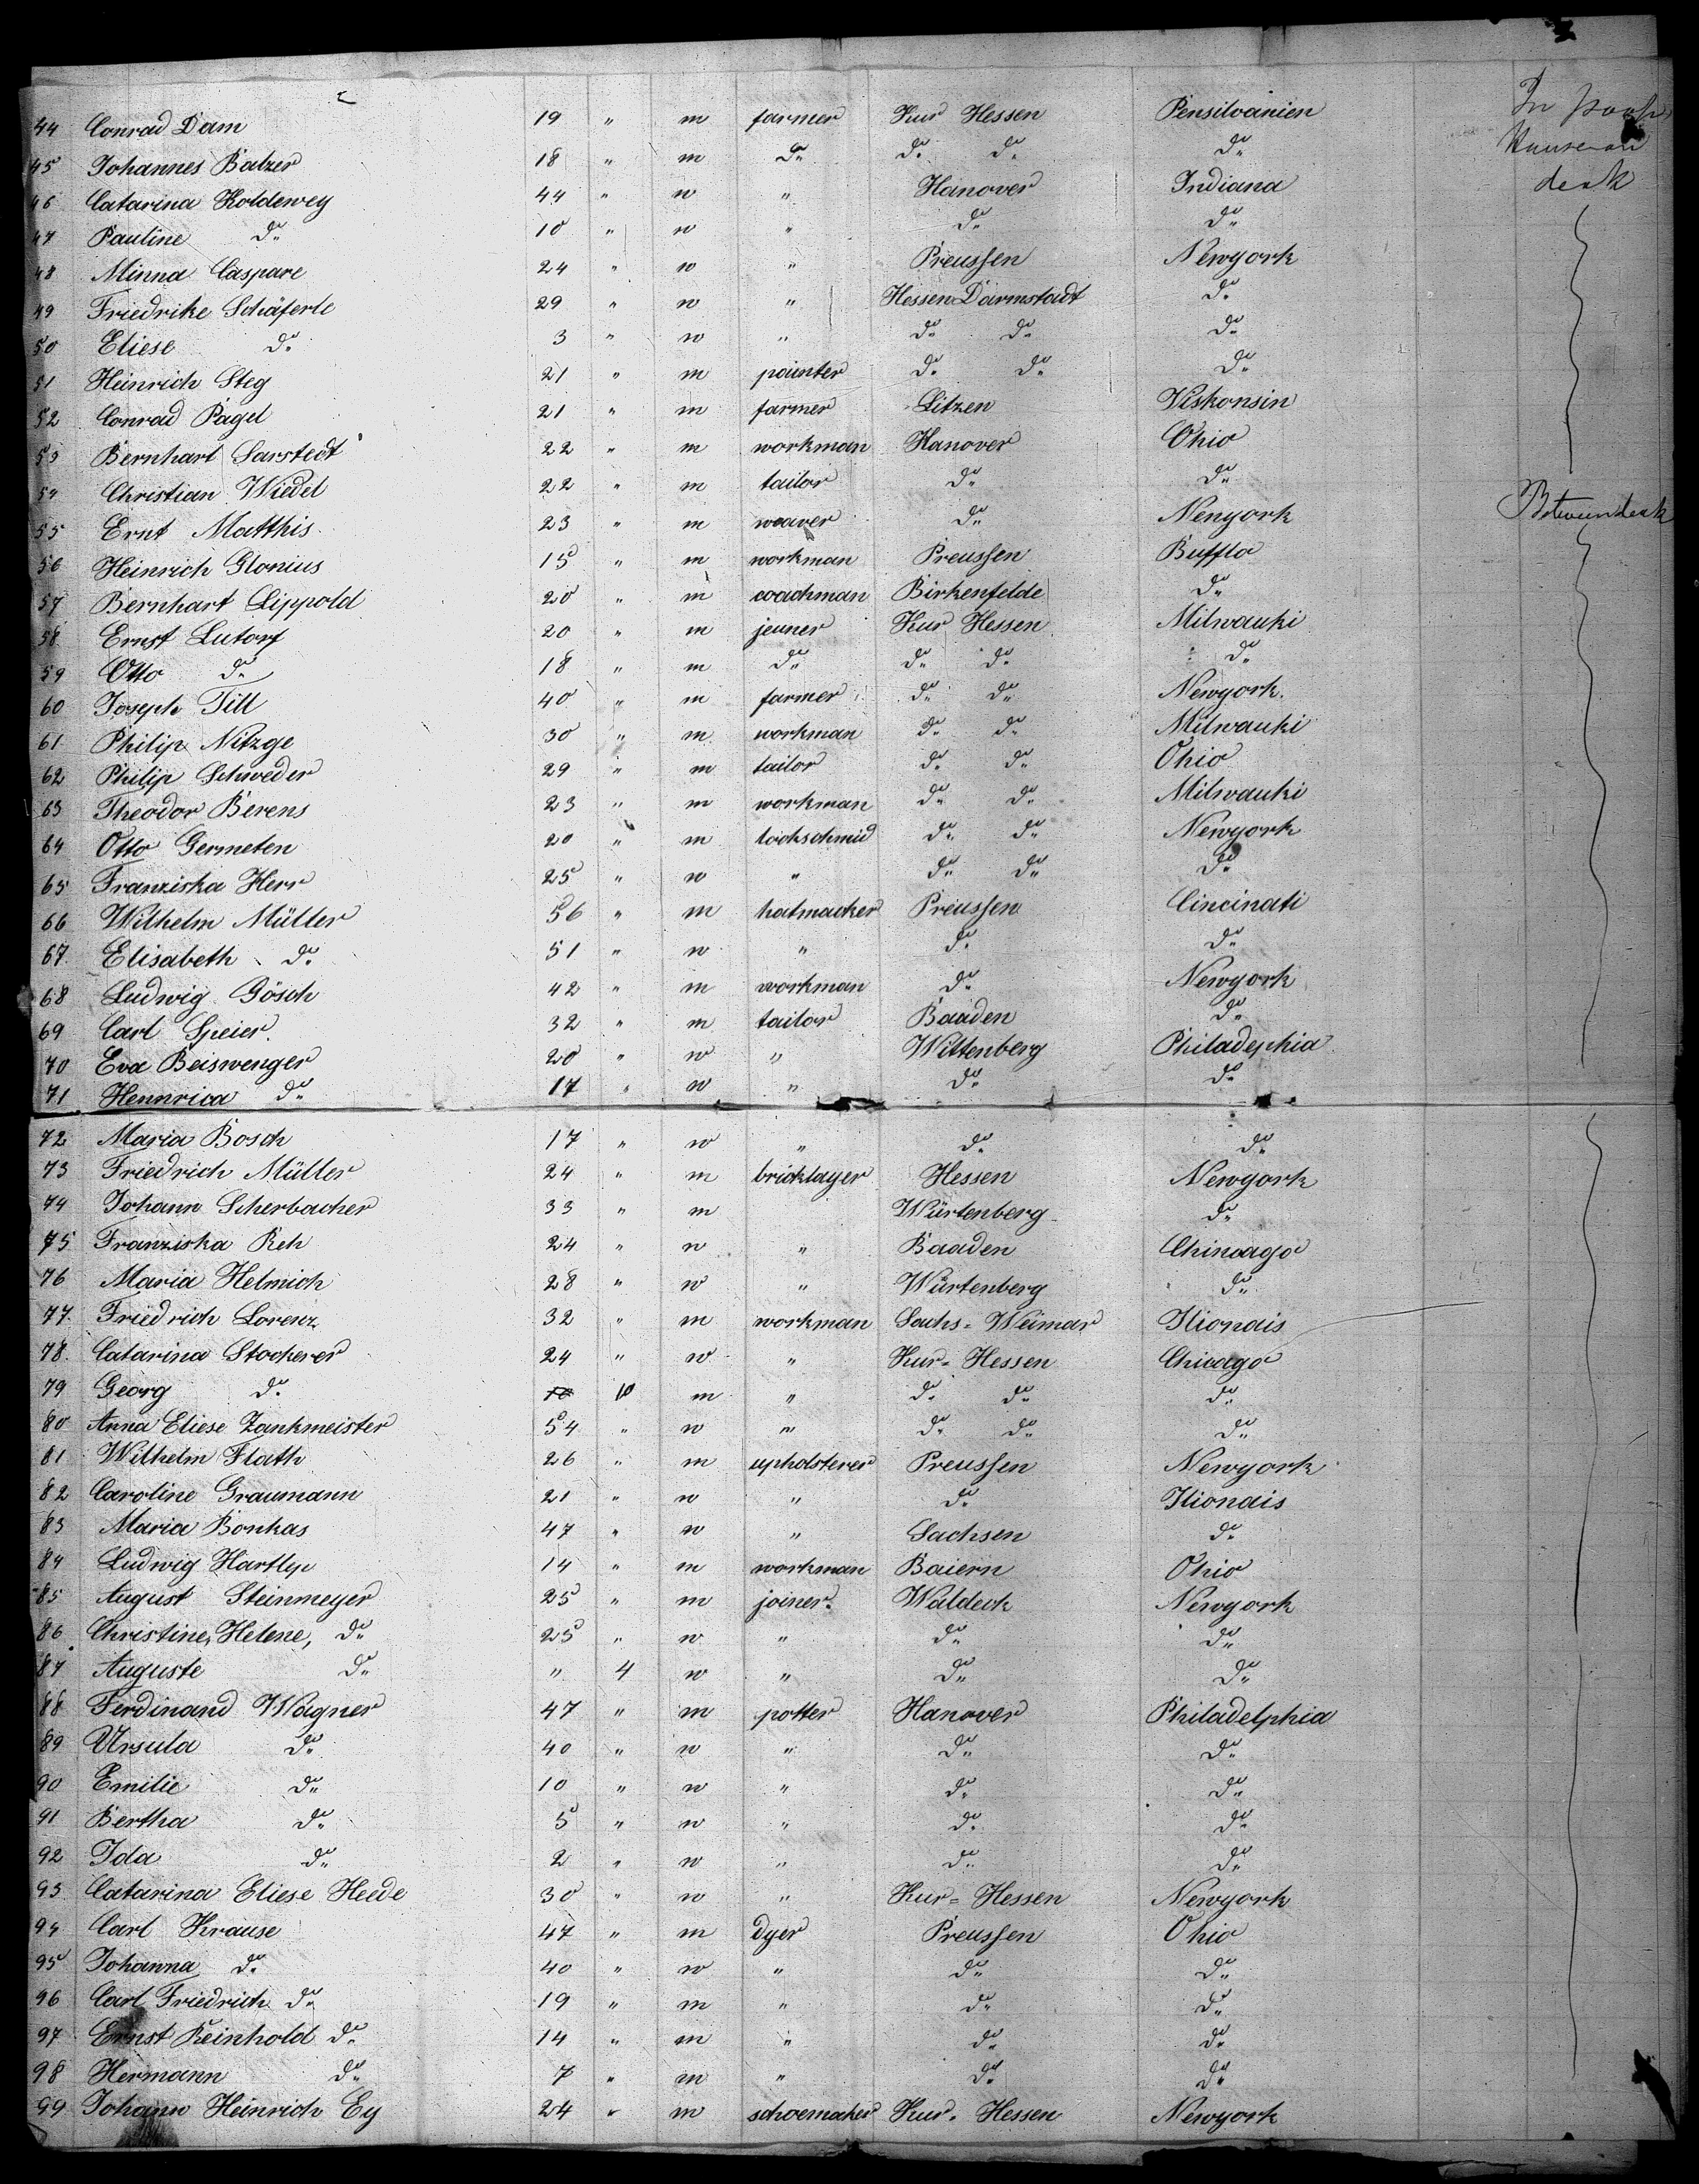 44 Conrad Dam 19 " m farmer Kur Hessen Pensilvanien In poop
45 Johannes Balzer 18 " m do do do do
46 Catarina Koldewey 44 " w " Hanover Indiana deck
47 Pauline do 10 " w " do do
48 Minna Caspare 24 " w " Preussen Newyork
49 Friedrike Schäferle 29 " w " Hessen Darmstadt do
50 Eliese do 3 " w " do do do
51 Heinrich Steg 21 " m painter do do do
52 Conrad Pagel 21 " m farmer Litzen Viskonsin
53 Bernhart Sarstedt 22 " m workman Hanover Ohio
54 Christian Wiedel 22 " m tailor do do
55 Ernt Matthis 23 " m weaver do Newyork Betweendeck
56 Heinrich Glonius 15 " m workman Preussen Bufflo
57 Bernhart Lippold 20 " m coachman Birkenfelde do
58 Ernst Lutorf 20 " m jeuner Kur Hessen Milwauki
59 Otto do 18 " m do do do do
60 Joseph Till 40 " m farmer do do Newyork
61 Philip Nitzge 30 " m workman do do Milwauki
62 Philip Schweder 29 " m tailor do do Ohio
63 Theodor Berens 23 " m workman do do Milwauki
64 Otto Germeten 20 " m lockschmid do do Newyork
65 Franziska Herr 25 " w " do do do
66 Wilhelm Müller 56 " m hatmacker Preussen Cincinati
67 Elisabeth do 51 " w " do do
68 Ludwig Gösch 42 " m workman do Newyork
69 Carl Speier 32 " m tailor Baaden do
70 Eva Beiswenger 20 " w " Wittenberg Philadephia
71 Hennrica do 17 " w " do do
72 Maria Bosch 17 " w " do do
73 Friedrich Müller 24 " m bricklayer Hessen Newyork
74 Johann Scherbacher 33 " m Würtenberg do
75 Franziska Reh 24 " w " Baaden Chincago
76 Maria Helmich 28 " w " Würtenberg do
77 Friedrich Lorenz 32 " m workman Sachs= Weimar Ilionais
78 Catarina Stockerer 24 " w " Kur= Hessen Chicago
79 Georg do 10 m " do do do
80 Anna Eliese Zankmeister 54 " w " do do do
81 Wilhelm Flath 26 " m upholsterer Preussen Newyork
82 Caroline Graumann 21 " w " do Ilionais
83 Maria Bonkas 47 " w " Sachsen do
84 Ludwig Hartlyp 14 " m workman Baiern Ohio
85 August Steinmeyer 25 " m joiner Waldeck Newyork
86 Christine, Helene, do 25 " w " do do
87 Auguste do " 4 w " do do
88 Ferdinand Wagner 47 " m potter Hanover Philadelphia
89 Ursula do 40 " w " do do
90 Emilie do 10 " w " do do
91 Bertha do 5 " w " do do
92 Ida do 2 " w " do do
93 Catarina Eliese Heede 30 " w " Kur= Hessen Newyork
94 Carl Krause 47 " m dyer Preussen Ohio
95 Johanna do 40 " w " do do
96 Carl Friedrich do 19 " m " do do
97 Ernst Reinhold do 14 " m " do do
98 Hermann do 7 " m " do do
99 Johann Heinrich Ey 24 " m schoemaker Kur= Hessen Newyork